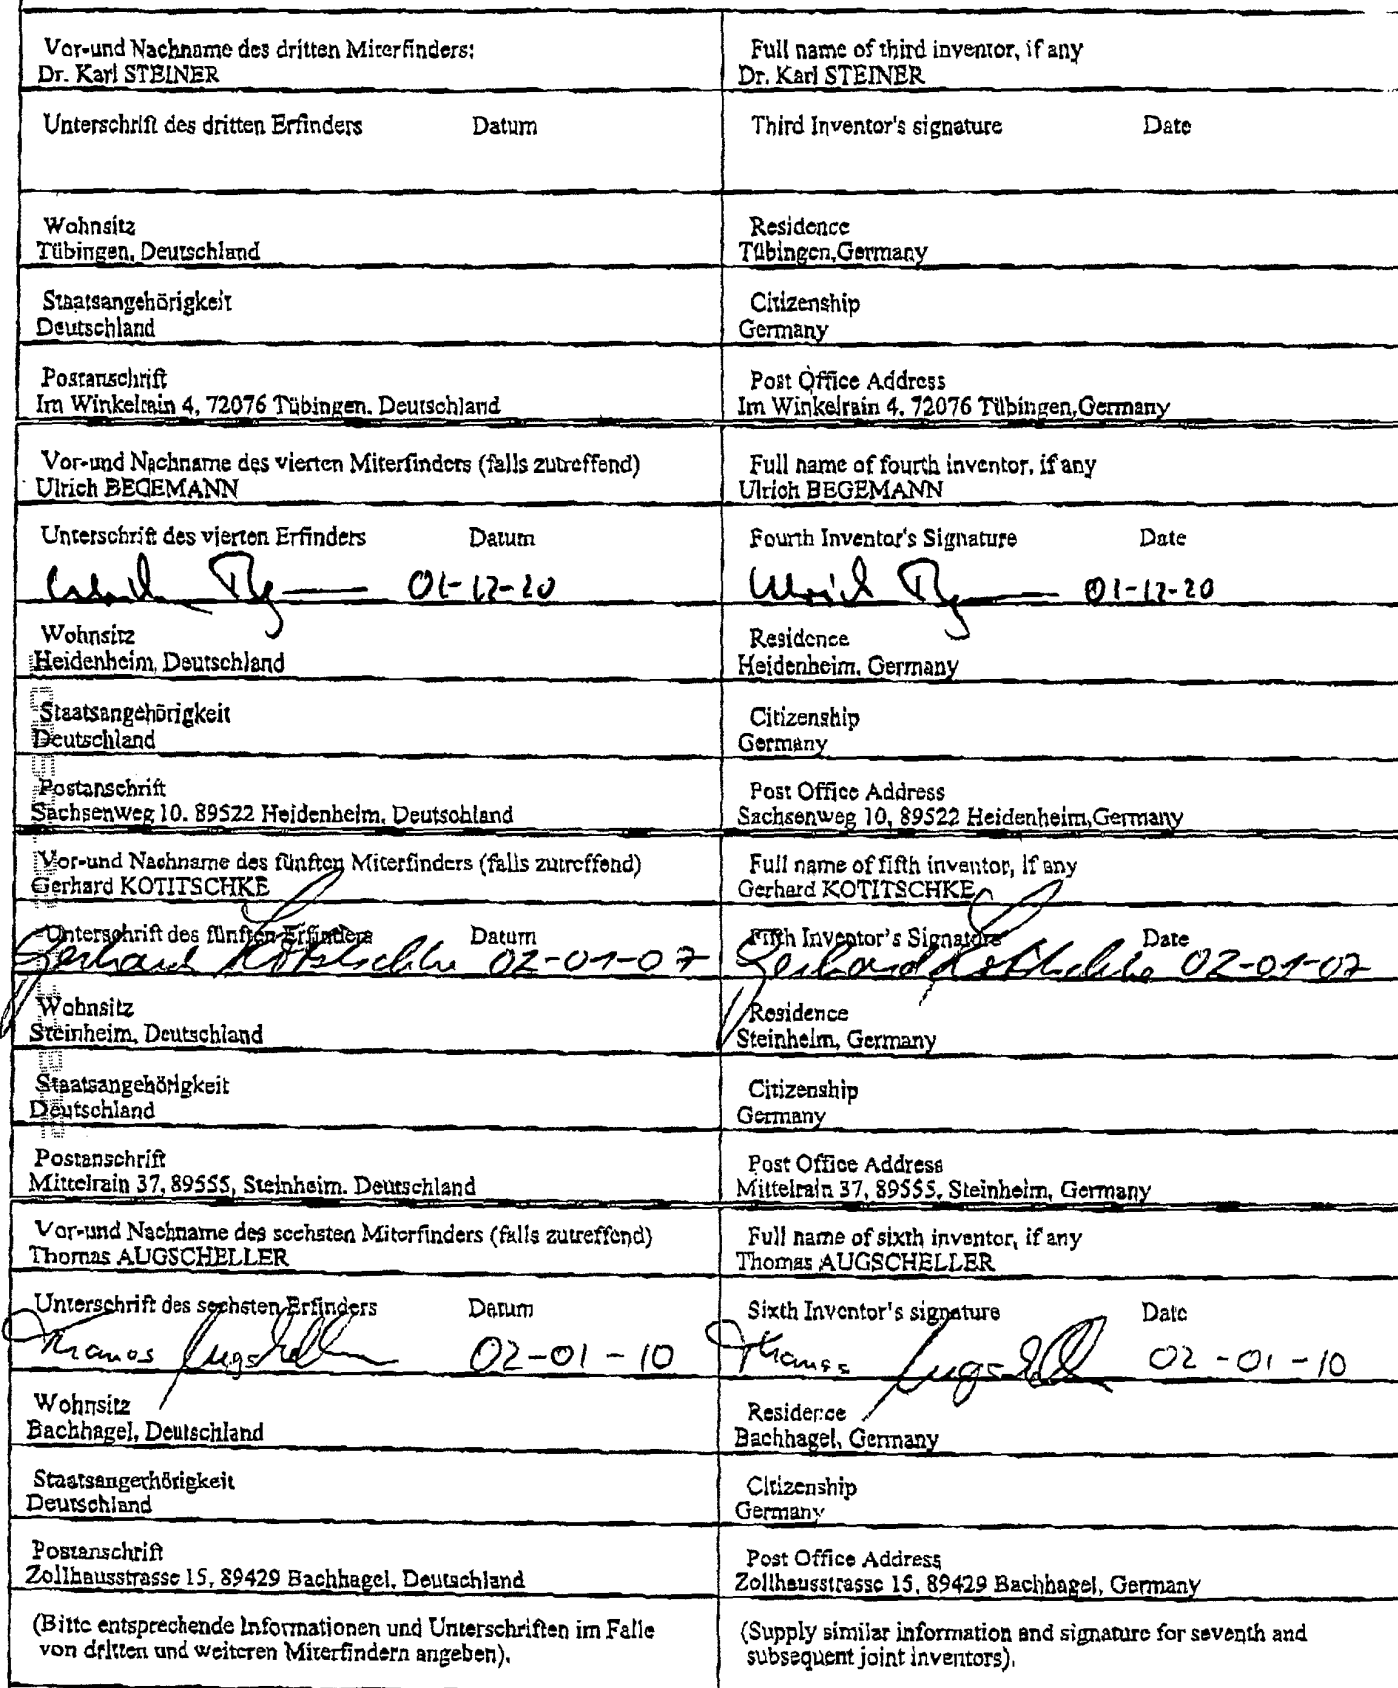 Vor-und Nachname des dritten Miterfinders:
Dr. Karl STEINER
Full name of third inventor, if any
Dr. Karl STEINER
Unterschrift des dritten Erfinders Datum
Third Inventor's signature Date
Wohnsitz
Tübingen, Deutschland
Residence
Tübingen,Germany
Staatsangehörigkeit
Deutschland
Citizenship
Germany
Postanschrift
Im Winkelrain 4, 72076 Tübingen. Deutschland
Post Office Address
Im Winkelrain 4, 72076 Tübingen,Germany
Vor-und Nachname des vierten Miterfinders (falls zutreffend)
Ulrich BEGEMANN
Full name of fourth inventor, if any
Ulrich BEGEMANN
Unterschrift des vierten Erfinders Datum
01-12-20
Fourth Inventor's Signature Date
Ulrich 01-12-20
Wohnsitz
Heidenheim, Deutschland
Residence
Heidenheim, Germany
Staatsangehörigkeit
Deutschland
Citizenship
Germany
Postanschrift
Sachsenweg 10. 89522 Heidenheim, Deutschland
Post Office Address
Sachsenweg 10, 89522 Heidenheim,Germany
Vor-und Nachname des fünften Miterfinders (falls zutreffend)
Gerhard KOTITSCHKE
Full name of fifth inventor, if any
Gerhard KOTITSCHKE
Unterschrift des fünften Erfinders Datum
Gerhard Kotitschke 02-01-07
Fifth Inventor's Signature Date
Gerhard Kotitschke 02-01-07
Wohnsitz
Steinheim, Deutschland
Residence
Steinheim, Germany
Staatsangehörigkeit
Deutschland
Citizenship
Germany
Postanschrift
Mittelrain 37, 89555, Steinheim. Deutschland
Post Office Address
Mittelrain 37, 89555, Steinheim, Germany
Vor-und Nachname des sechsten Miterfinders (falls zutreffend)
Thomas AUGSCHELLER
Full name of sixth inventor, if any
Thomas AUGSCHELLER
Unterschrift des sechsten Erfinders Datum
Thomas Augscheller 02-01-10
Sixth Inventor's signature Date
Thomas Augscheller 02-01-10
Wohnsitz
Bachhagel, Deutschland
Residence
Bachhagel, Germany
Staatsangerhörigkeit
Deutschland
Citizenship
Germany
Postanschrift
Zollhausstrasse 15, 89429 Bachhagel, Deutschland
Post Office Address
Zollhausstrasse 15, 89429 Bachhagel, Germany
(Bitte entsprechende Informationen und Unterschriften im Falle
von dritten und weiteren Miterfindern angeben).
(Supply similar information and signature for seventh and
subsequent joint inventors).